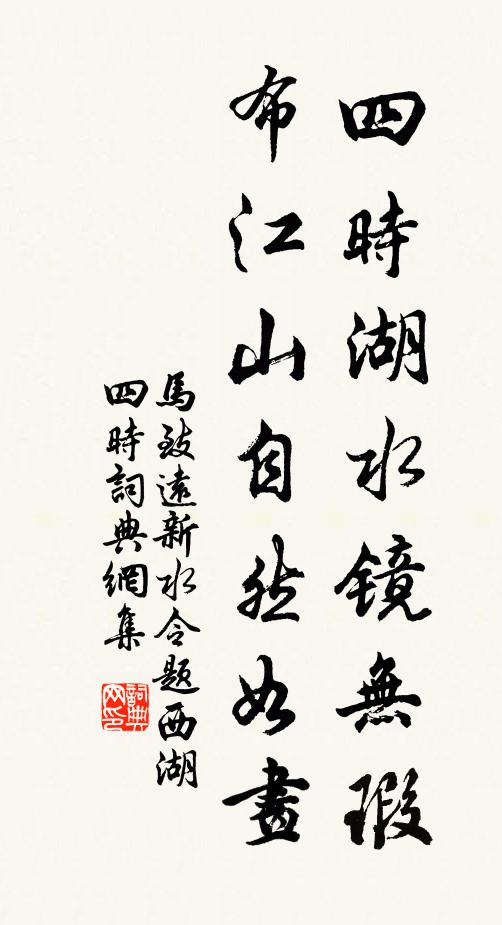 四時湖水镜無瑕
布江山自然如畫
馬致遠新水令题西湖
四時詞典網集
詞典網印